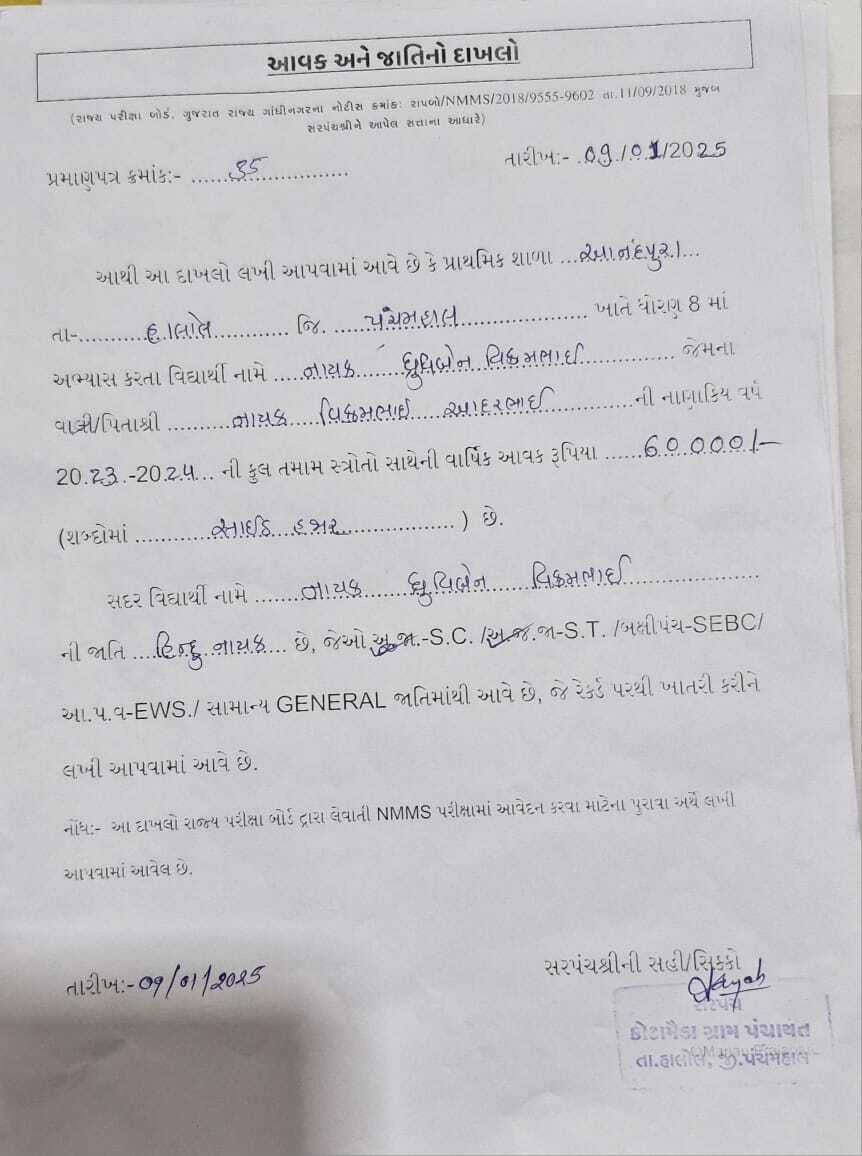 આવક અને જાતિનો દાખલો
(રાજ્ય પરીક્ષા બોર્ડ, ગુજરાત રાજ્ય ગાંધીનગરના નોટીસ ક્રમાંક: રાપબો/NMMS/2018/9555-9602 તા.11/09/2018 મુજબ
સરપંચશ્રીને આપેલ સત્તાના આધારે)
પ્રમાણપત્ર ક્રમાંક:- ......35...............
તારીખ:- .09./01/2025
આથી આ દાખલો લખી આપવામાં આવે છે કે પ્રાથમિક શાળા ...આનંદપુરા...
તા-..........હાલોલ............ જિ. .....પંચમહાલ.................. ખાતે ધોરણ 8 માં
અભ્યાસ કરતા વિદ્યાર્થી નામે .....નાયક.......ધ્રુવિબેન વિક્રમભાઈ............. જેમના
વાલી/પિતાશ્રી ..........નાયક.....વિક્રમભાઈ.....આદરભાઈ............ની નાણાકિય વર્ષ
20.23.-20.24... ની કુલ તમામ સ્ત્રોતો સાથેની વાર્ષિક આવક રૂપિયા ......60.000/-
(શબ્દોમાં ...........સાઈઠ...હજાર.................) છે.
સદર વિદ્યાર્થી નામે .......નાયક......ધ્રુવિબેન......વિક્રમભાઈ...................
ની જાતિ ....હિન્દુ નાયક... છે, જેઓ અ.જા.-S.C. /અ.જ.જા-S.T. /બક્ષીપંચ-SEBC/
આ.પ.વ-EWS./ સામાન્ય GENERAL જાતિમાંથી આવે છે, જે રેકર્ડ પરથી ખાતરી કરીને
લખી આપવામાં આવે છે.
નોંધ:- આ દાખલો રાજ્ય પરીક્ષા બોર્ડ દ્વારા લેવાતી NMMS પરીક્ષામાં આવેદન કરવા માટેના પુરાવા અર્થે લખી
આપવામાં આવેલ છે.
તારીખ:-09/01/2025
સરપંચશ્રીની સહી/સિક્કો
સરપંચ
કોટામૈડા ગ્રામ પંચાયત
તા.હાલોલ, જી.પંચમહાલ